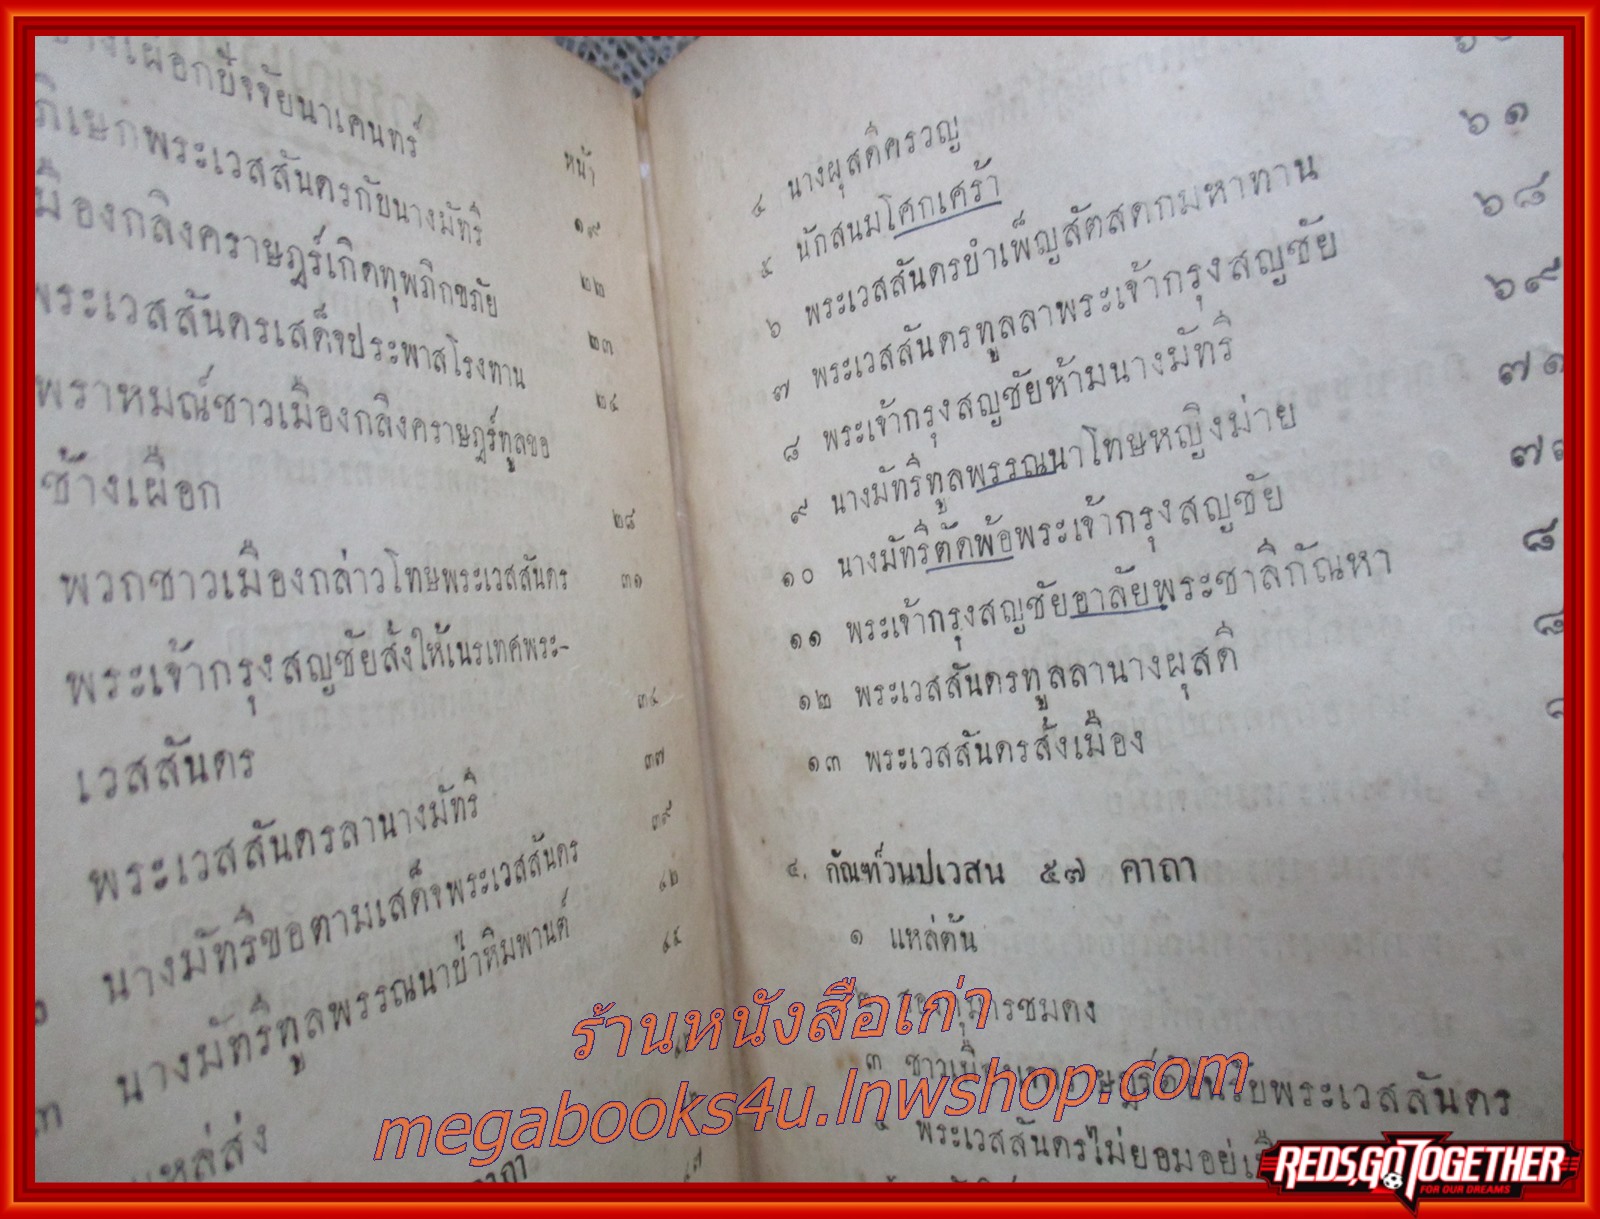 ช้างเผือกปัจจัยนาเคนทร์
หน้า
ภิเษกพระเวสสันดรกับนางมัทรี ๑๙
เมืองกลิงคราษฎร์เกิดทุพภิกขภัย ๒๒
พระเวสสันดรเสด็จประพาสโรงทาน ๒๓
พราหมณ์ชาวเมืองกลิงคราษฎร์ทูลขอ ๒๔
ช้างเผือก
๒๘
พวกชาวเมืองกล่าวโทษพระเวสสันดร ๓๑
พระเจ้ากรุงสญชัยสั่งให้เนรเทศพระ-
เวสสันดร ๓๔
พระเวสสันดรลานางมัทรี ๓๗
นางมัทรีขอตามเสด็จพระเวสสันดร ๓๙
นางมัทรีทูลพรรณนาป่าหิมพานต์ ๔๒
๔๕
แหล่ส่ง
คาถา ๔๗
๔ นางผุสดีคร่ำครวญ
๕ นักสนมโศกเศร้า ๖๑
๖ พระเวสสันดรบำเพ็ญสัตสดกมหาทาน ๖๘
๗ พระเวสสันดรทูลลาพระเจ้ากรุงสญชัย ๖๙
๘ พระเจ้ากรุงสญชัยห้ามนางมัทรี ๗๑
๙ นางมัทรีทูลพรรณนาโทษหญิงม่าย
๑๐ นางมัทรีตัดพ้อพระเจ้ากรุงสญชัย
๑๑ พระเจ้ากรุงสญชัยอาลัยพระชาลีกัณหา
๑๒ พระเวสสันดรทูลลานางผุสดี
๑๓ พระเวสสันดรสั่งเมือง
๔. กัณฑ์วนปเวสน ๕๗ คาถา
๑ แหล่ต้น
๒ สองกุมารชมดง
๓ ชาวเมืองเจตราษฎร์ต้อนรับพระเวสสันดร
๔ พระเวสสันดรไม่ยอมอยู่เมือง
ร้านหนังสือเก่า
megabooks4u.lnwshop.com
REDS,GO TOGETHER
FOR OUR DREAMS